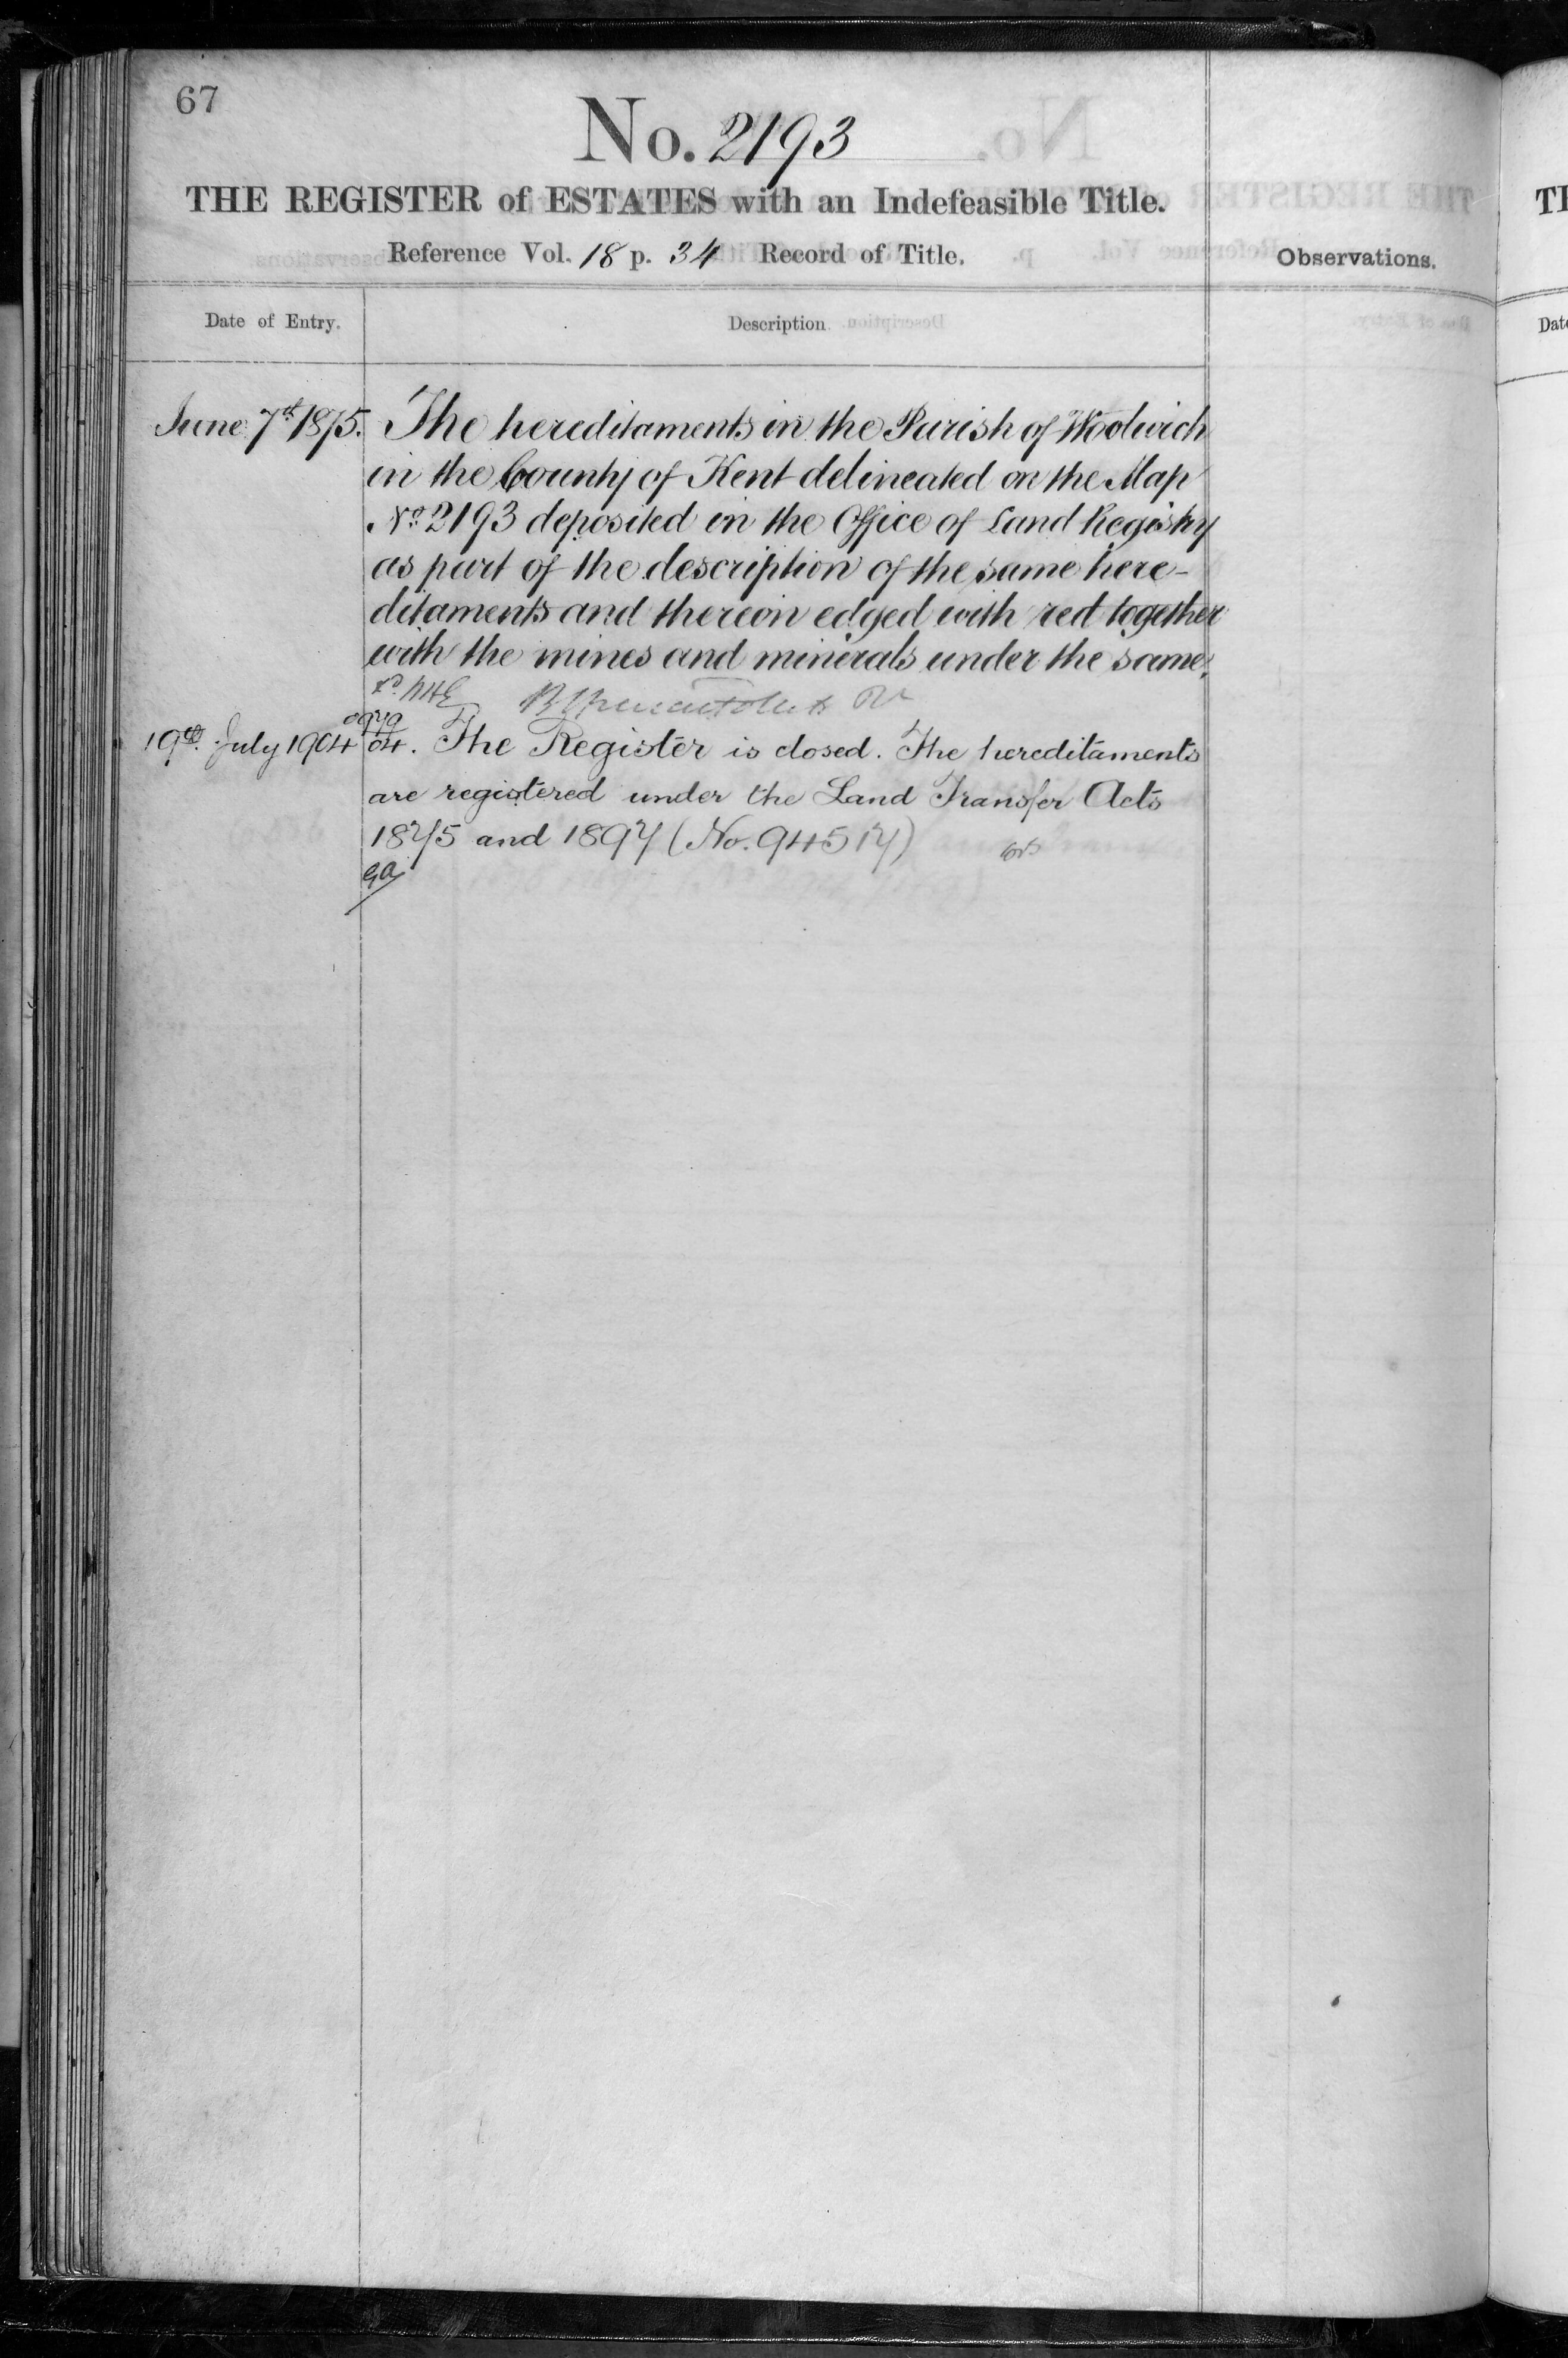 67
No. 2193
THE REGISTER of ESTATES with an Indefeasible Title.
Reference Vol. 18 p. 34 Record of Title.
Observations.
Date of Entry.
Description
June 7th 1875.
The hereditaments in the Parish of Woolwich
in the County of Kent delineated on the Map
No 2193 deposited in the Office of Land Registry
as part of the description of the same here-
ditaments and thereon edged with red together
with the mines and minerals under the same.
19th July 1904
04. The Register is closed. The hereditaments
are registered under the Land Transfer Acts
1875 and 1897 (No. 94517)